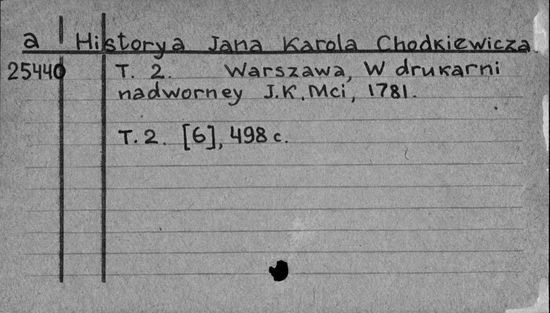 a Historya Jana Karola Chodkiewicza
25440 T. 2. Warszawa, W drukarni
nadworney J.K.Mci, 1781.
T. 2. [6], 498 c.